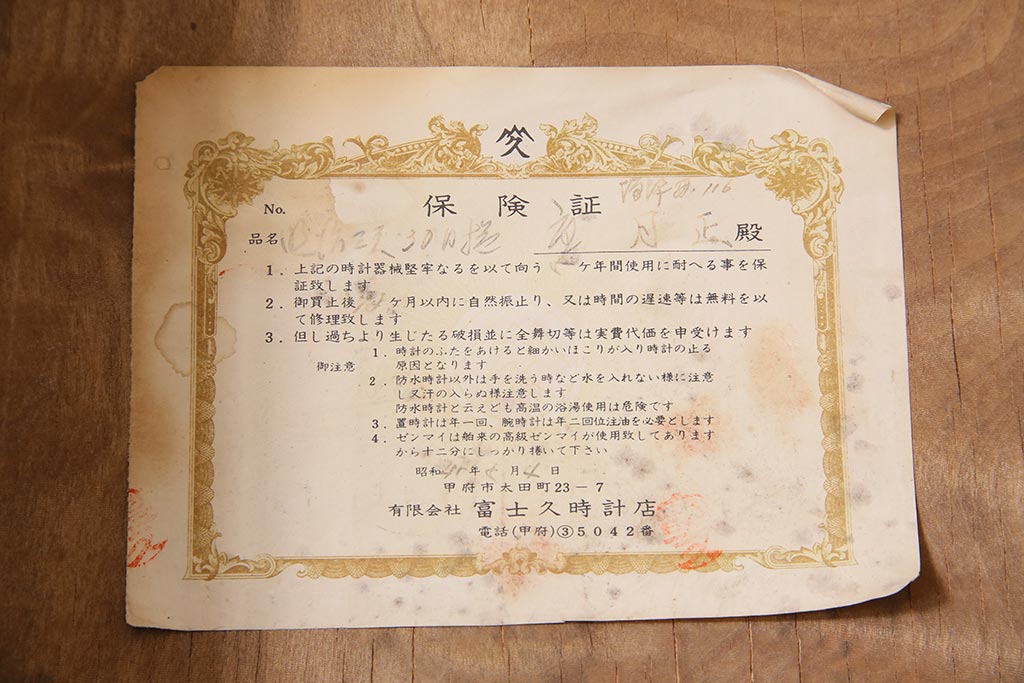 久
No.
保険証
品名 30日捲 正 殿
1. 上記の時計器械堅牢なるを以て向う ケ年間使用に耐へる事を保
証致します
2. 御買止後 ケ月以内に自然振止り、又は時間の遅速等は無料を以
て修理致します
3. 但し過ちより生じたる破損並に全舞切等は実費代価を申受けます
御注意
1. 時計のふたをあけると細かいほこりが入り時計の止る
原因となります
2. 防水時計以外は手を洗う時など水を入れない様に注意
し又汗の入らぬ様注意します
防水時計と云えども高温の浴湯使用は危険です
3. 置時計は年一回、腕時計は年二回位注油を必要とします
4. ゼンマイは舶来の高級ゼンマイが使用致してあります
から十二分にしっかり捲いて下さい
昭和 年 月 4 日
甲府市太田町23-7
有限会社 富士久時計店
電話(甲府)③5042番